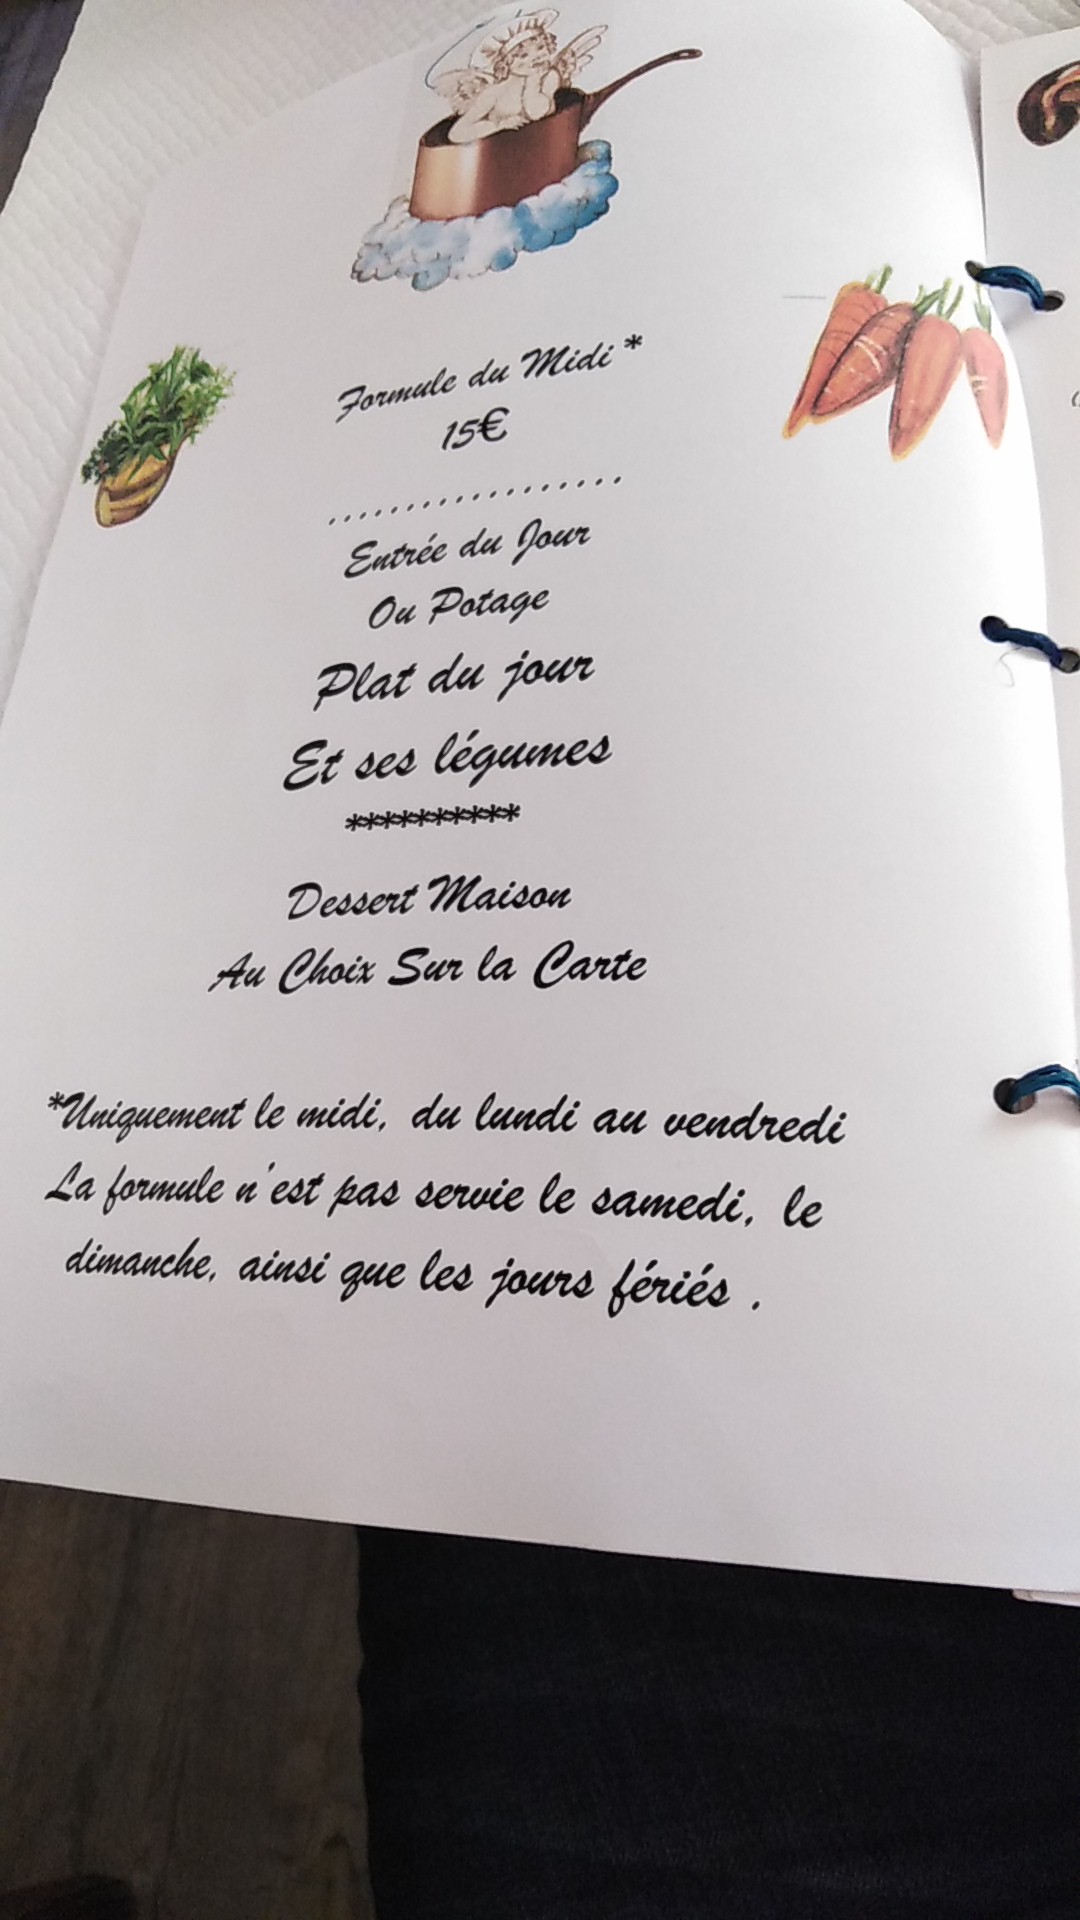 Formule du Midi *
15€
..................
Entrée du Jour
Ou Potage
Plat du jour
Et ses légumes
**********
Dessert Maison
Au Choix Sur la Carte
*Uniquement le midi, du lundi au vendredi
La formule n'est pas servie le samedi, le
dimanche, ainsi que les jours fériés .